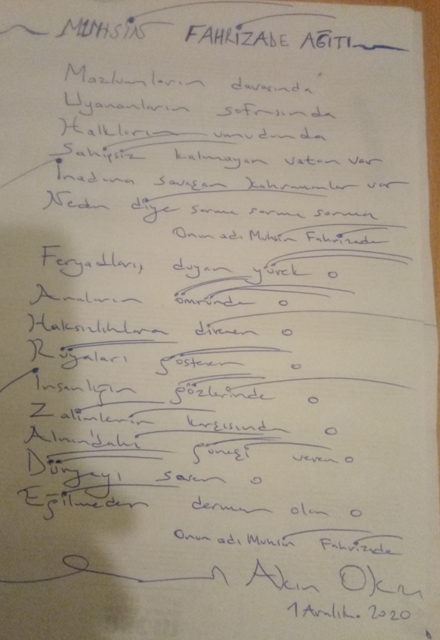 MUHSİN FAHRİZADE AĞITI
Mazlumların davasında
Uyananların sofrasında
Halkların umudunda
Sahipsiz kalmayan vatan var
İnadına savaşan kahramanlar var
Neden diye sorma sorma sorma
Onun adı Muhsin Fahrizade
Feryadları, duyan yürek o
Anaların ömründe o
Haksızlıklara direnen o
Rüyaları gösteren o
İnsanlığın gözlerinde o
Zalimlerin karşısında o
Alnındaki güneşi veren o
Dünyayı saran o
Eğilmeden derman olan o
Onun adı Muhsin Fahrizade
Akın Ok
1 Aralık. 2020